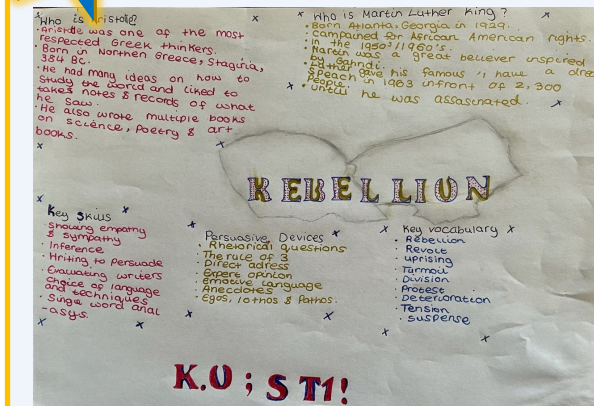 Who is Aristotle?
· Aristotle was one of the most
respected Greek thinkers.
· Born in Northen Greece, Stagiria,
384 BC.
· He had many ideas on how to
study the world and liked to
takes notes & records of what
he saw.
· He also wrote multiple books
on science, poetry & art
books.
Who is Martin Luther King?
· Born Atlanta, Georgia in 1929.
· campained for African American rights.
· In the 1950's/1960's.
· Martin was a great believer inspired
by Gahndi.
· Luther gave his famous 'I have a drea
speech in 1963 infront of 2,300
people.
· until he was assasinated.
REBELLION
Key Skills
· Showing empathy
& sympathy
· Inference
· Writing to persuade
· Evaluating writers
choice of language
and techniques
· Single word anal
-asys.
Persuasive Devices
· Rhetorical questions
· The rule of 3
· Direct adress
· Expert opinion
· Emotive language
· Anecdotes
· Egos, lothos & Pathos.
Key vocabulary
· Rebellion
· Revolt
· uprising
· Turmoil
· Division
· Protest
· Deterioration
· Tension
· suspense
K.O ; ST1!